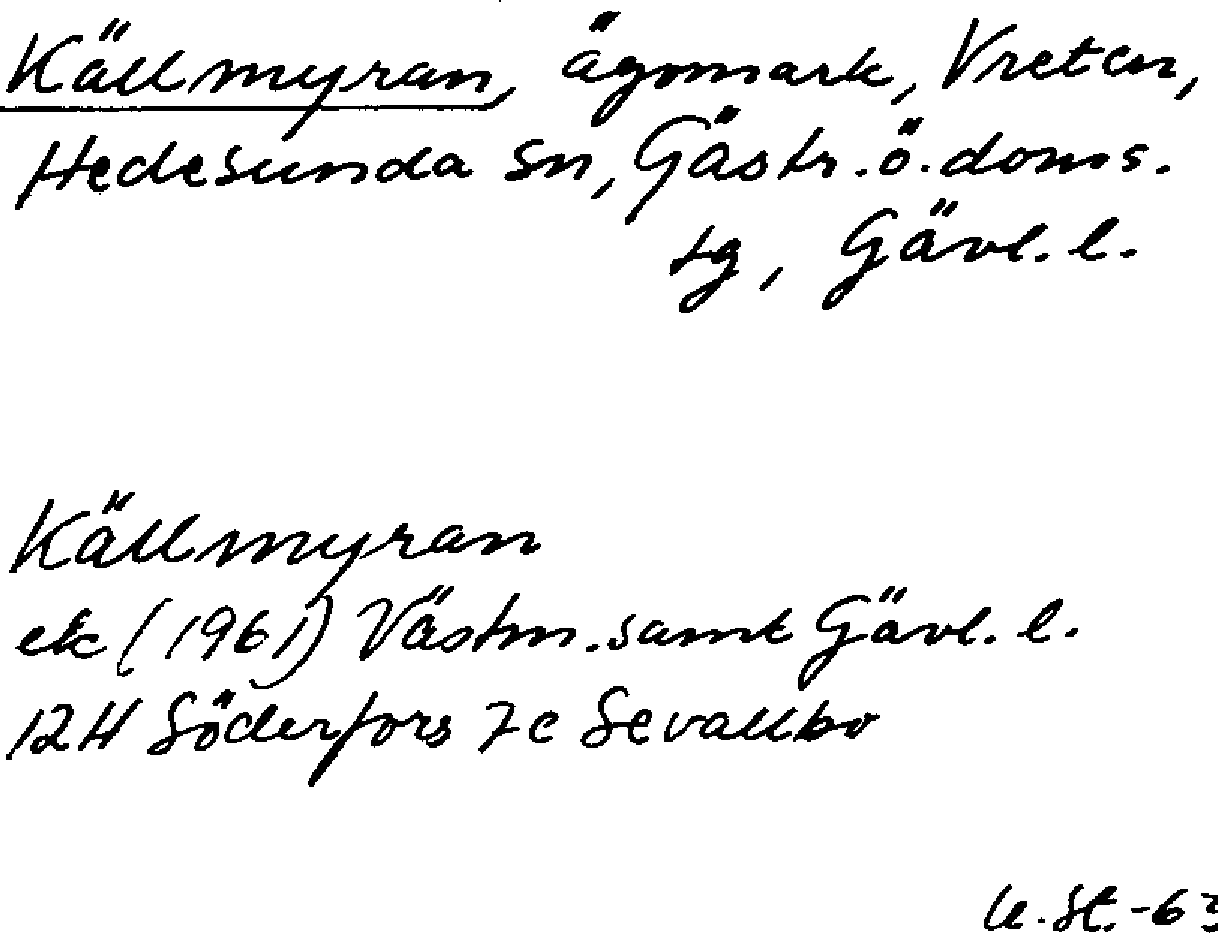 Källmyran, ägomark, Vreten,
Hedesunda sn, Gästr. ö. doms.
tg, Gävl. l.
Källmyran
ek (1961) Västm. samt Gävl. l.
12H Söderfors 7c Sevallbo
U. St. -63